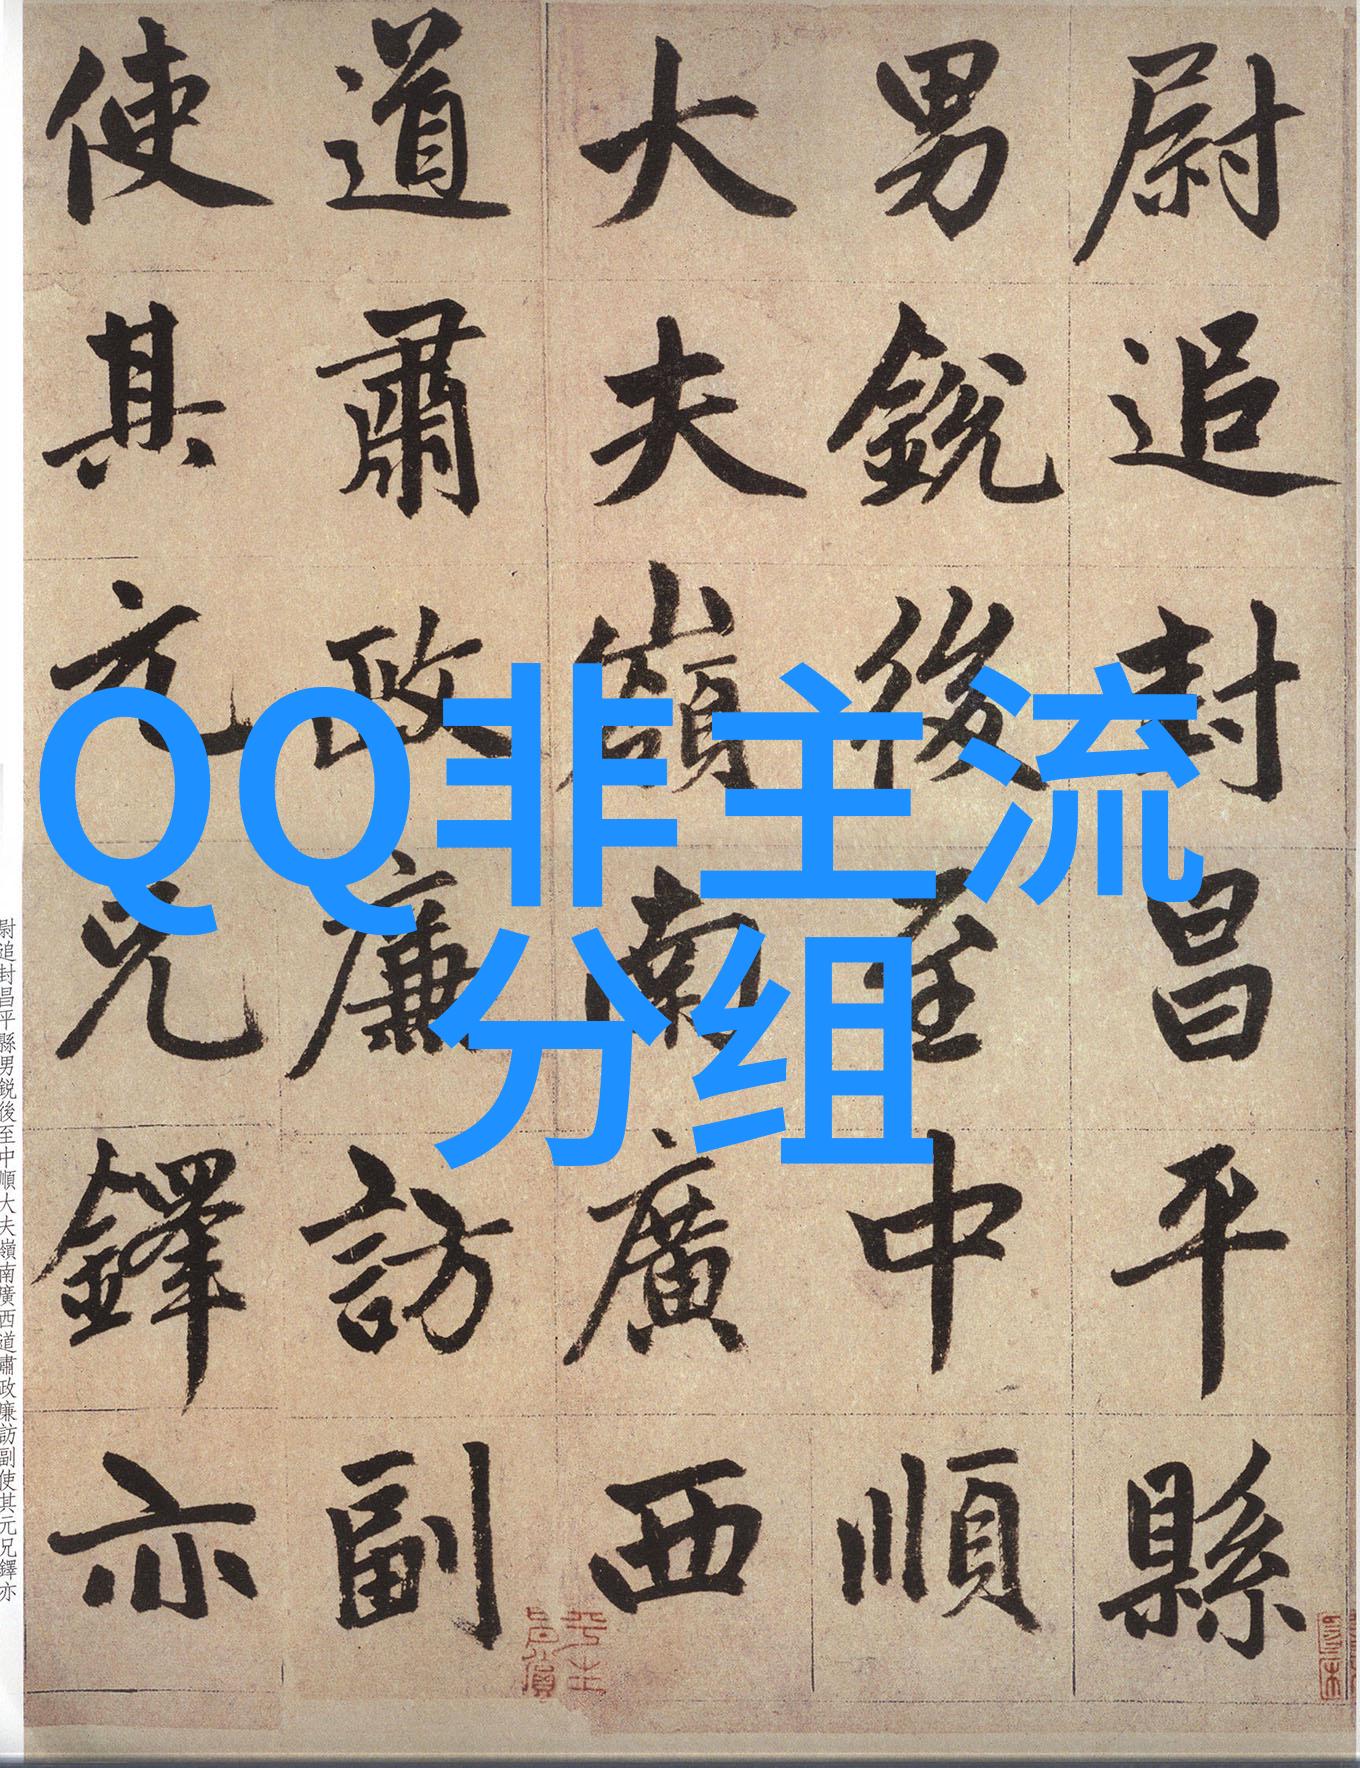 尉追封昌平縣
男銳後至中順
大夫嶺南廣西
道肅政廉訪副
使其元兄鐸亦
QQ非主流
分组
尉追封昌平縣男銳後至中順大夫嶺南廣西道肅政廉訪副使其元兄鐸亦